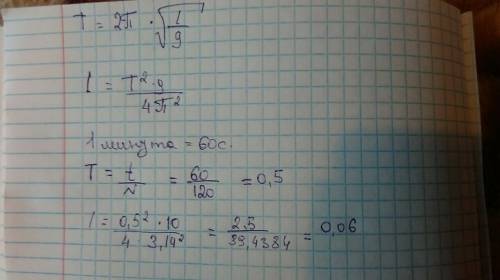 T = 2π · √l/g
l = T²·g / 4π²
1 минута = 60с.
T = t/N = 60/120 = 0,5
l = 0,5² · 10 / 4 · 3,14² = 2.5 / 39,4384 = 0,06